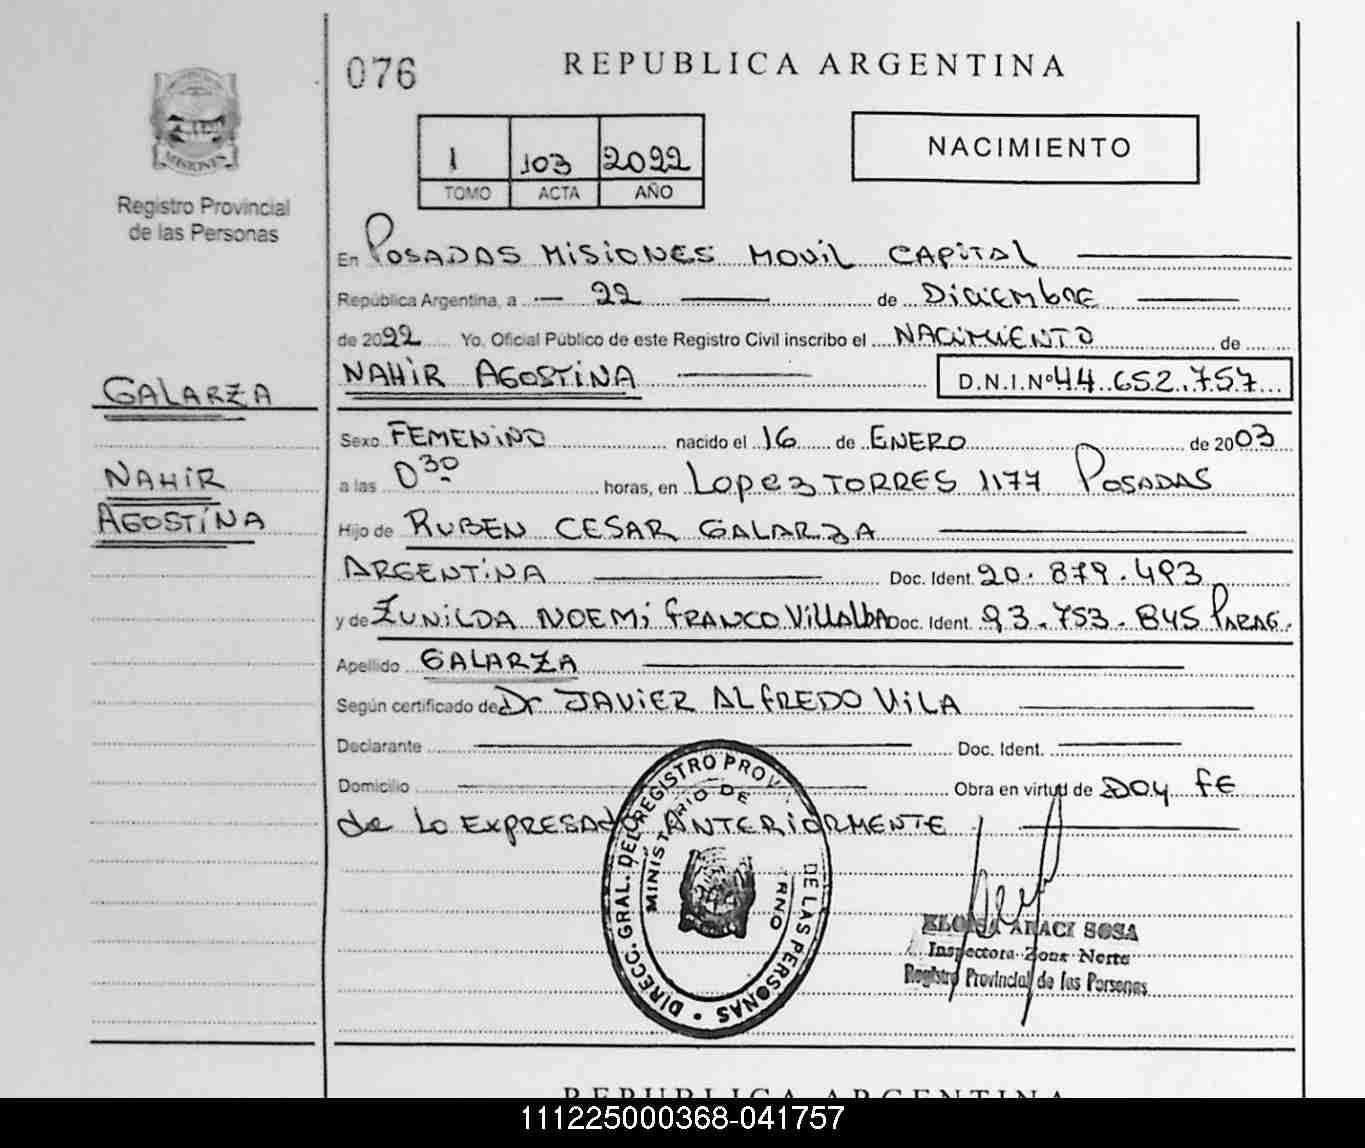 076
REPUBLICA ARGENTINA
1 103 2022
TOMO ACTA AÑO
NACIMIENTO
MISIONES
Registro Provincial
de las Personas
En POSADAS MISIONES MOVIL CAPITAL
República Argentina, a 22 de DICIEMBRE
de 2022 Yo, Oficial Público de este Registro Civil inscribo el NACIMIENTO de
NAHIR AGOSTINA D.N.I.Nº 44.652.757
GALARZA
Sexo FEMENINO nacido el 16 de ENERO de 2003
NAHIR
a las 0 30 horas, en Lopez TORRES 1177 POSADAS
AGOSTINA
Hijo de RUBEN CESAR GALARZA
ARGENTINA Doc. Ident. 20.879.493
y de ZUNILDA NOEMi FRANCO VillAlbA Doc. Ident. 93.753.845 PARAG.
Apellido GALARZA
Según certificado de Dr JAVIER ALFREDO VILA
Declarante Doc. Ident.
Domicilio Obra en virtud de DOY FE
de Lo EXPRESADO ANTERIORMENTE
DIRECC. GRAL. DEL REGISTRO PROV. DE LAS PERSONAS
MINISTERIO DE
ELOISA ARACI SOSA
Inspectora Zona Norte
Registro Provincial de las Personas
REPUBLICA ARGENTINA
111225000368-041757